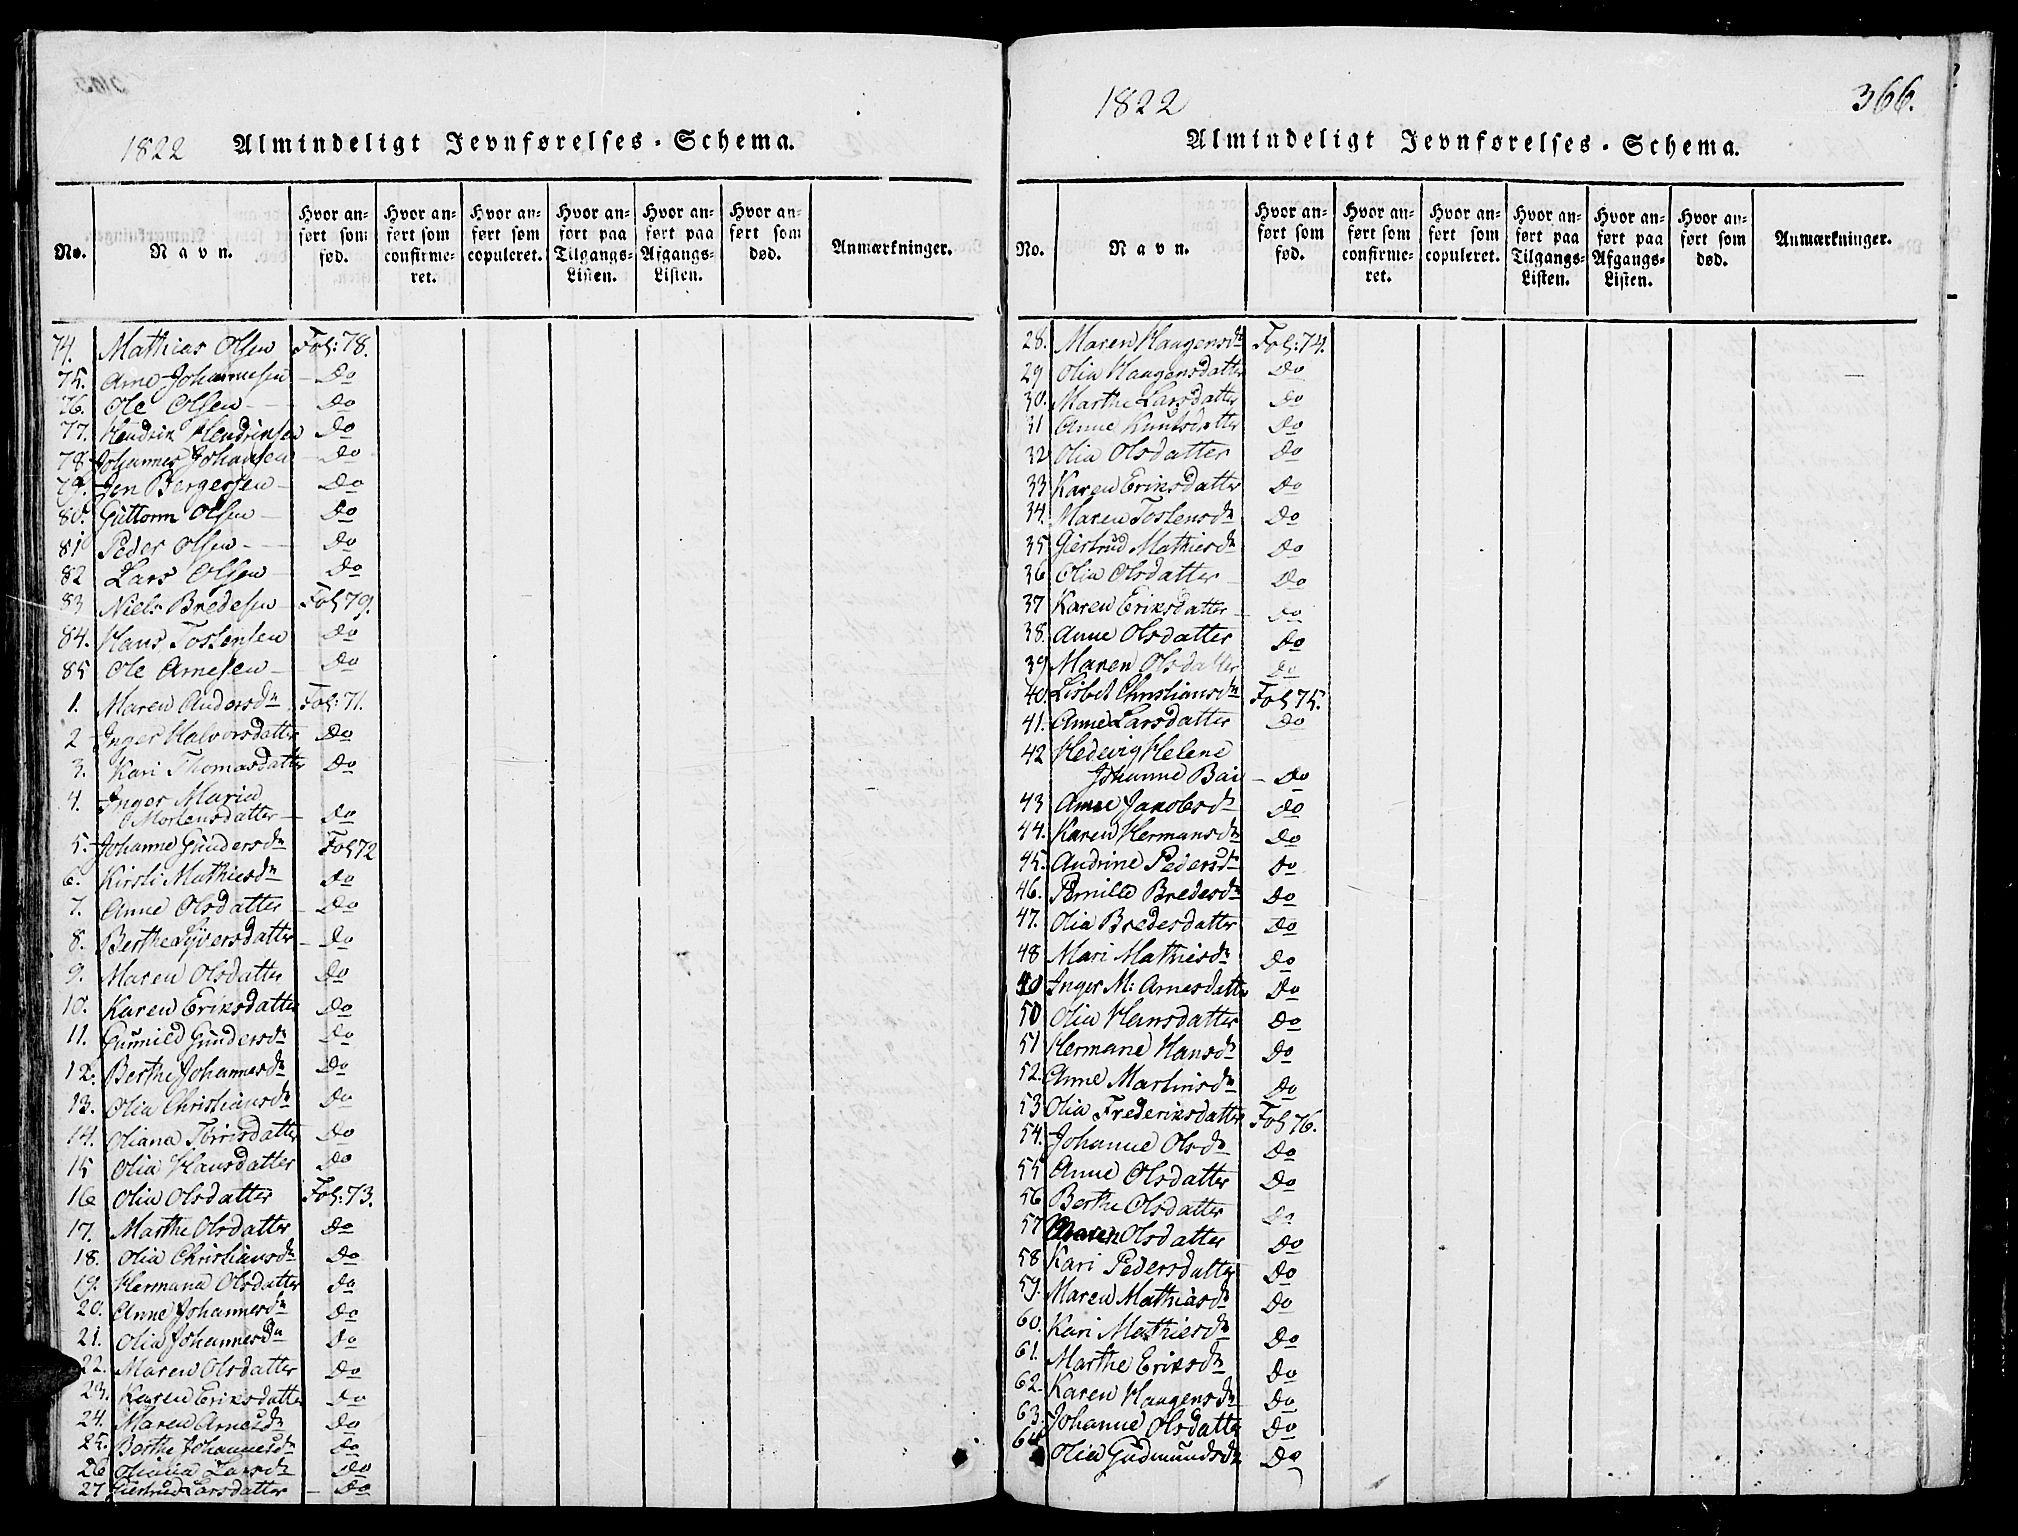 1822 Almindeligt Jevnførelses-Schema.
No. Navn. Hvor anført som fød. Hvor anført som confirmeret. Hvor anført som copuleret. Hvor anført paa Tilgangs-Listen. Hvor anført paa Afgangs-Listen. Hvor anført som død. Anmærkninger.
74. Mathias Olsen Fol: 78.
75. Arne Johannesen Do
76. Ole Olsen Do
77. Hendrik Hendriksen Do
78. Johannes Johansen Do
79. Jen Bergersen Do
80. Guttorm Olsen Do
81 Peder Olsen Do
82 Lars Olsen Do
83 Niels Bredesen Fol 79.
84. Hans Tostensen Do
85 Ole Arnesen Do
1. Maren Andersdr Fol: 71.
2 Inger Halvorsdatter Do
3. Kari Thomasdatter Do
4. Inger Maria
Mortensdatter Do
5. Johanne Gundersdr Fol 72
6. Kirsti Mathiesdr Do
7. Anne Olsdatter Do
8. Berthe Syversdatter Do
9. Maren Olsdatter Do
10. Karen Eriksdatter Do
11. Gunnild Gundersdr Do
12. Berthe Johannesdr Do
13. Olia Christiansdr Do
14. Oliana Torrisdatter Do
15 Olia Hansdatter Do
16 Olia Olsdatter Fol: 73.
17. Marthe Olsdatter Do
18. Olia Christiansdr Do
19. Hermana Olsdatter Do
20. Anne Johannesdr Do
21. Olia Johannesdr Do
22. Maren Olsdatter Do
23. Karen Eriksdatter Do
24. Maren Arnesdr Do
25. Berthe Johannesdr Do
26 Oliana Larsdr Do
27 Giertrud Larsdatter Do
1822 366.
Almindeligt Jevnførelses-Schema.
No. Navn. Hvor anført som fød. Hvor anført som confirmeret. Hvor anført som copuleret. Hvor anført paa Tilgangs-Listen. Hvor anført paa Afgangs-Listen. Hvor anført som død. Anmærkninger.
28. Maren Haagensdr Fol: 74.
29 Olia Haagensdatter Do
30. Marthe Larsdatter Do
31 Anne Knutsdatter Do
32 Olia Olsdatter Do
33 Karen Eriksdatter Do
34. Maren Tostensdr Do
35 Giertrud Mathiesdr Do
36 Olia Olsdatter Do
37 Karen Eriksdatter Do
38. Anne Olsdatter Do
39 Maren Olsdatter Do
40. Lisbet Christiansdr Fol 75.
41. Anne Larsdatter Do
42 Hedevig Helene
Johanne Bai Do
43 Anne Jacobsdr Do
44. Karen Hermansdr Do
45. Andrine Pedersdr Do
46. Pernille Bredesdr Do
47. Olia Bredesdatter Do
48 Mari Mathiesdr Do
49 Inger M: Arnesdatter Do
50 Olia Hansdatter Do
51 Hermane Hansdr Do
52. Anne Martinsdr Do
53 Olia Frederiksdatter Fol 76.
54. Johanne Olsdr Do
55 Anne Olsdatter Do
56 Berthe Olsdatter Do
57 Maren Olsdatter Do
58 Kari Pedersdatter Do
59. Maren Mathiasdr Do
60. Kari Mathiesdr Do
61. Marthe Eriksdr Do
62. Karen Haagensdr Do
63. Johanne Olsdatter Do
64 Olia Gudmundsdr Do